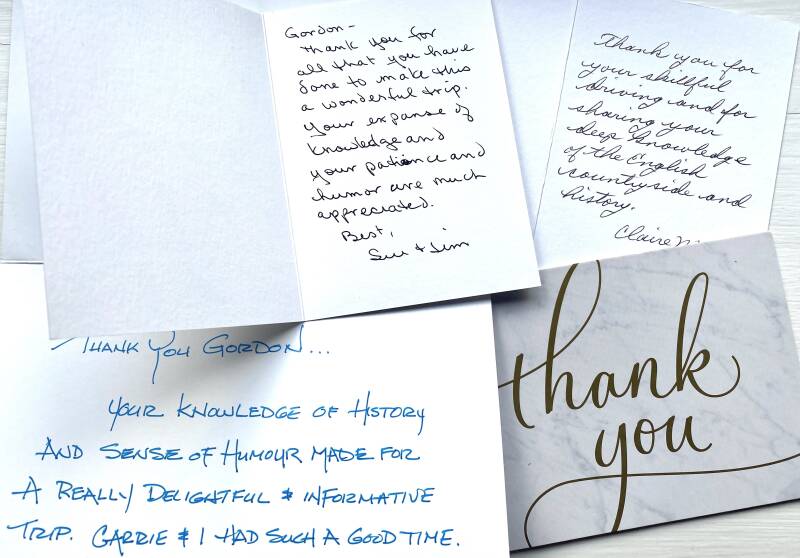 Gordon-
Thank you for
all that you have
done to make this
a wonderful trip.
Your expanse of
knowledge and
your patience and
humor are much
appreciated.
Best,
Sue + Jim
Thank you for
your skillful
driving and for
sharing your
deep knowledge
of the English
countryside and
history.
Claire
THANK YOU GORDON...
YOUR KNOWLEDGE OF HISTORY
AND SENSE OF HUMOUR MADE FOR
A REALLY DELIGHTFUL & INFORMATIVE
TRIP. CARRIE & I HAD SUCH A GOOD TIME.
thank
you